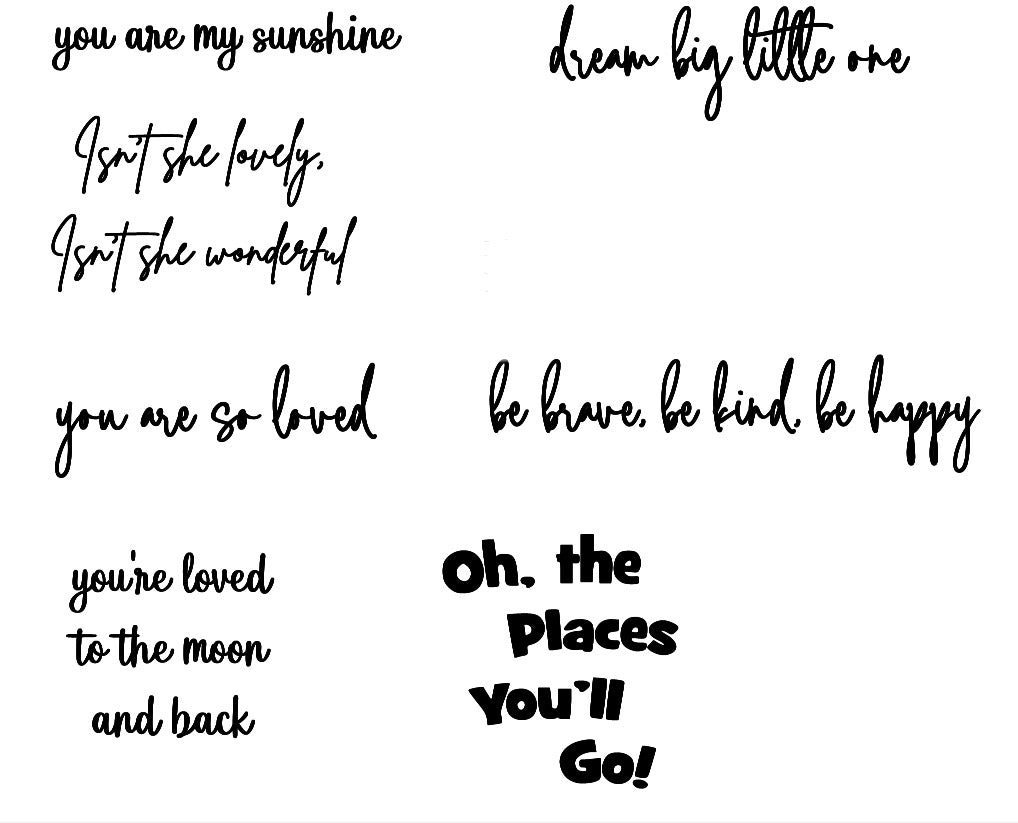 you are my sunshine
dream big little one
Isn't she lovely,
Isn't she wonderful
you are so loved
be brave, be kind, be happy
you're loved
to the moon
and back
Oh, the
Places
You'll
Go!